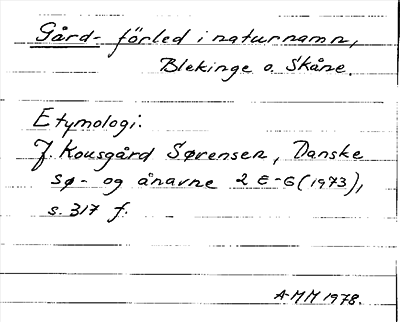 Gård- förled i naturnamn,
Blekinge o. Skåne.
Etymologi:
J. Kousgård Sørensen, Danske
sø- og ånavne 2 E-G (1973),
s. 317 f.
A-MM 1978.